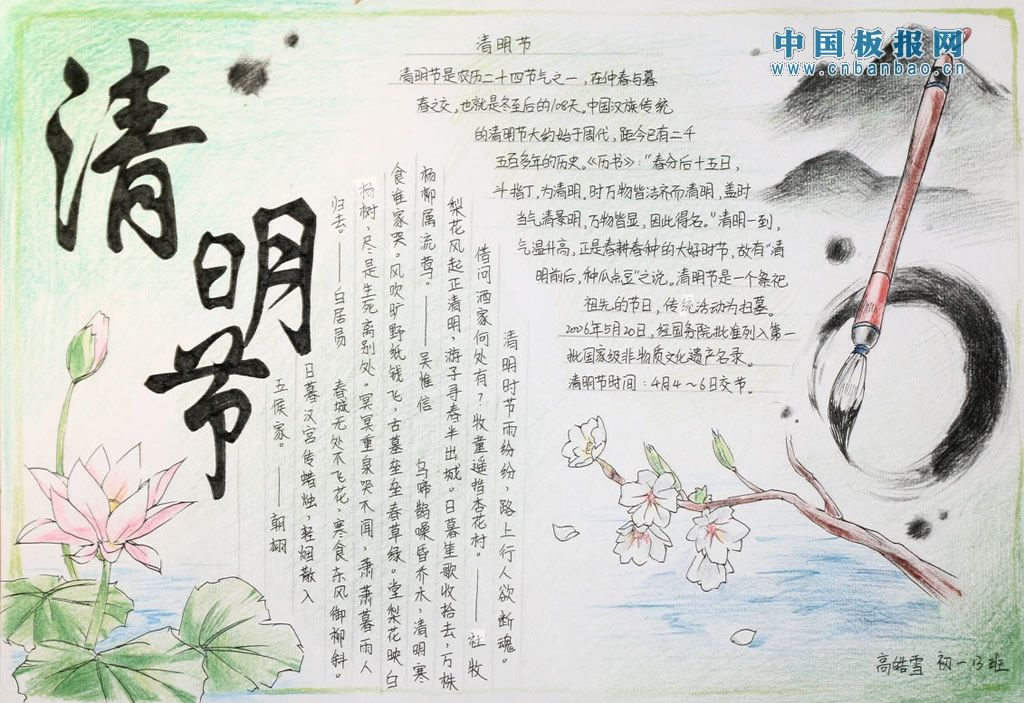 中国板报网
www.cnbanbao.cn
清明节
清明节
清明节是农历二十四节气之一，在仲春与暮
春之交，也就是冬至后的108天。中国汉族传统
的清明节大约始于周代，距今已有二千
五百多年的历史。《历书》：“春分后十五日，
斗指丁，为清明，时万物皆洁齐而清明，盖时
当气清景明，万物皆显，因此得名。”清明一到，
气温升高，正是春耕春种的大好时节，故有“清
明前后，种瓜点豆”之说。清明节是一个祭祀
祖先的节日，传统活动为扫墓。
2006年5月20日，经国务院批准列入第一
批国家级非物质文化遗产名录。
清明节时间：4月4～6日交节。
清明时节雨纷纷，路上行人欲断魂。
借问酒家何处有？牧童遥指杏花村。——杜牧
梨花风起正清明，游子寻春半出城。日暮笙歌收拾去，万株
杨柳属流莺。——吴惟信 乌啼鹊噪昏乔木，清明寒
食谁家哭。风吹旷野纸钱飞，古墓垒垒春草绿。堂梨花映白
杨树，尽是生死离别处。冥冥重泉哭不闻，萧萧暮雨人
归去。——白居员 春城无处不飞花，寒食东风御柳斜。
日暮汉宫传蜡烛，轻烟散入
五侯家。——朝翃
高皓雪 初一13班